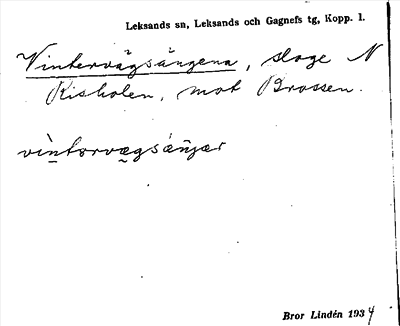 Leksands sn, Leksands och Gagnefs tg, Kopp. l.
Vintervägsängena, sloge N
Risholen, mot Brossen.
vìntərvægsáŋar
Bror Lindén 1934